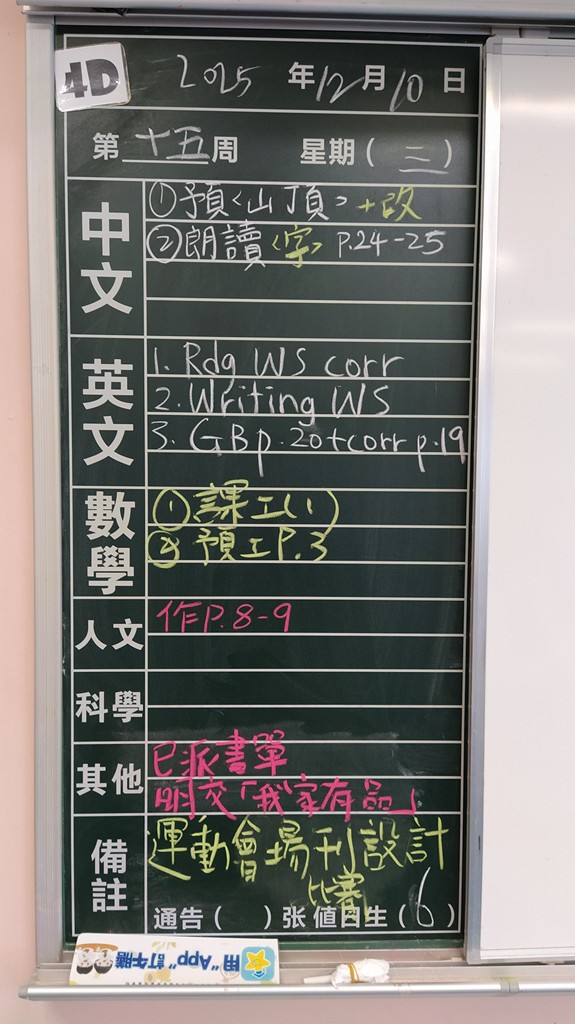 4D
2025 年 12 月 10 日
第 十五 周 星期 ( 三 )
中文
①預<山頂>+改
②朗讀<字> P.24-25
英文
1. Rdg WS corr
2. Writing WS
3. GB p.20+corr p.19
數學
①課工(1)
②預工P.3
人文
作P.8-9
科學
其他
已派書單
明交「我家有品」
備註
運動會場刊設計
比賽
通告 ( ) 张 值日生 ( 6 )
用"App"訂午膳